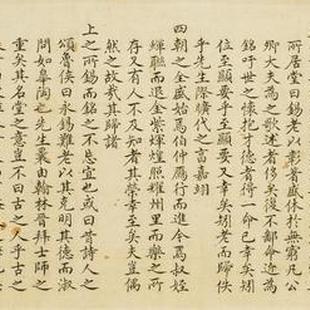 所居堂曰錫老以彰著盛休於無窮凡公
卿大夫為之歌述者侈矣後不鄙命近為
銘吁世之懷抱才德者得一命已幸矣矧
位至顯要乎至顯要又幸矣矧老而歸佚
乎先生際曠代之音嘉翊
四朝之全盛始焉伯仲鴈行而進今焉叔姪
輝聯而退金紫煇煌照耀州里而樂之所
存又有人不及知者其榮幸至矣夫豈偶
然之故哉其歸諸
上之所錫而銘之不忘宜也或曰昔詩人之
頌魯侯曰永錫難老以其克明其德而淑
問如皋陶也先生曩由翰林晉拜士師之
重矣其名堂之意豈不曰古之
乎古之